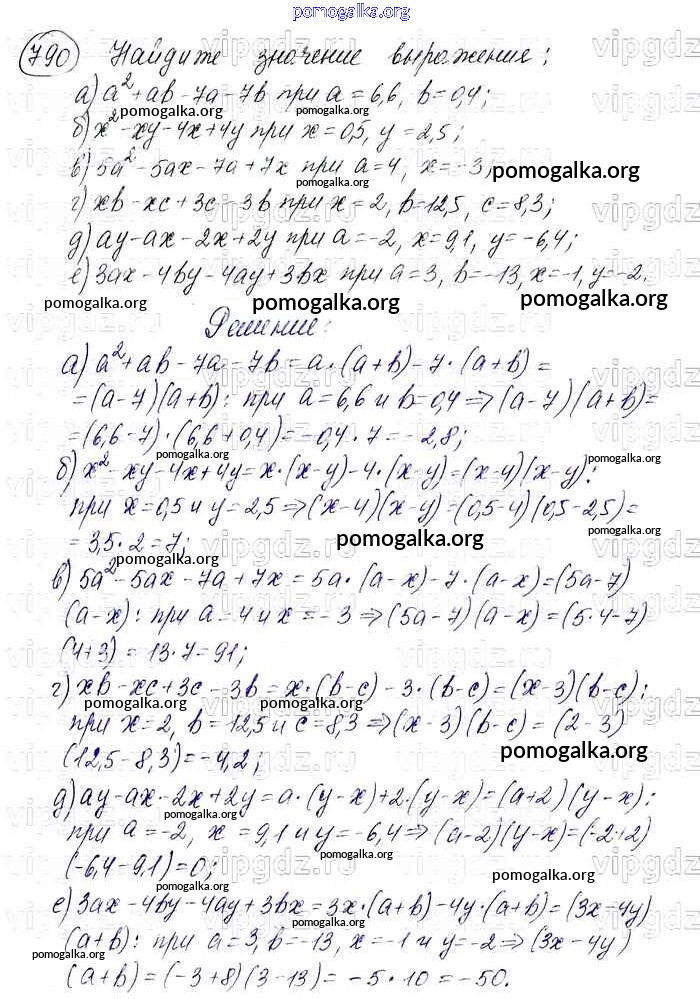 pomogalka.org
790 Найдите значение выражения:
а) a²+ab-7a-7b при a=6,6, b=0,4;
pomogalka.org
б) x²-xy-4x+4y при x=0,5, y=2,5;
pomogalka.org
в) 5a²-5ax-7a+7x при a=4, x=-3;
pomogalka.org
pomogalka.org
г) xb-xc+3c-3b при x=2, b=12,5, c=8,3;
pomogalka.org
д) ay-ax-2x+2y при a=-2, x=9,1, y=-6,4;
е) 3ax-4by-4ay+3bx при a=3, b=-13, x=-1, y=-2.
pomogalka.org pomogalka.org pomogalka.org
Решение:
а) a²+ab-7a-7b=a·(a+b)-7·(a+b)=
pomogalka.org
=(a-7)(a+b): при a=6,6 и b=0,4⇒(a-7)(a+b)=
pomogalka.org
=(6,6-7)·(6,6+0,4)=-0,4·7=-2,8;
pomogalka.org
б) x²-xy-4x+4y=x·(x-y)-4·(x-y)=(x-y)(x-y):
pomogalka.org
при x=0,5 и y=2,5⇒(x-4)(x-y)=(0,5-4)(0,5-2,5)=
=3,5·2=7;
pomogalka.org
pomogalka.org
в) 5a²-5ax-7a+7x=5a·(a-x)-7·(a-x)=(5a-7)
(a-x): при a=4 и x=-3⇒(5a-7)(a-x)=(5·4-7)
pomogalka.org
(4+3)=13·7=91;
г) xb-xc+3c-3b=x·(b-c)-3·(b-c)=(x-3)(b-c);
pomogalka.org pomogalka.org
при x=2, b=12,5 и c=8,3⇒(x-3)(b-c)=(2-3)
(12,5-8,3)=-4,2;
pomogalka.org
д) ay-ax-2x+2y=a·(y-x)+2·(y-x)=(a+2)(y-x):
pomogalka.org
при a=-2, x=9,1 и y=-6,4⇒(a-2)(y-x)=(-2+2)
pomogalka.org
(-6,4-9,1)=0;
pomogalka.org
е) 3ax-4by-4ay+3bx=3x·(a+b)-4y·(a+b)=(3x-4y)
pomogalka.org
(a+b): при a=3, b=-13, x=-1 и y=-2⇒(3x-4y)
pomogalka.org pomogalka.org
(a+b)=(-3+8)(3-13)=-5·10=-50.